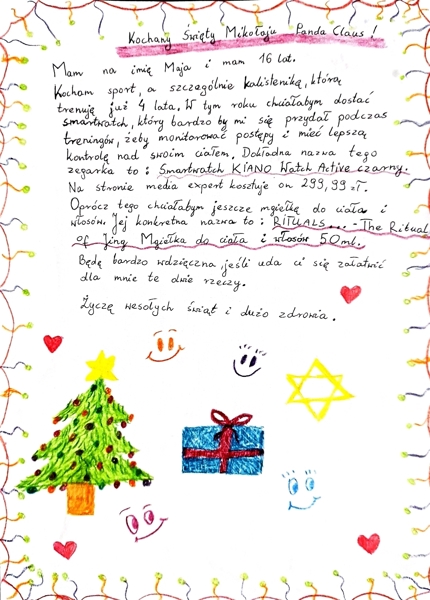 Kochany Święty Mikołaju Panda Claus !
Mam na imię Maja i mam 16 lat.
Kocham sport, a szczególnie kalistenikę, którą
trenuję już 4 lata. W tym roku chciałabym dostać
smartwatch, który bardzo by mi się przydał podczas
treningów, żeby monitorować postępy i mieć lepszą
kontrolę nad swoim ciałem. Dokładna nazwa tego
zegarka to : Smartwatch KIANO Watch Active czarny.
Na stronie media expert kosztuje on 299,99 zł.
Oprócz tego chciałabym jeszcze mgiełkę do ciała i
włosów. Jej konkretna nazwa to : RITUALS... - The Ritual
of Jing Mgiełka do ciała i włosów 50ml.
Będę bardzo wdzięczna, jeśli uda ci się załatwić
dla mnie te dwie rzeczy.
Życzę wesołych świąt i dużo zdrowia.